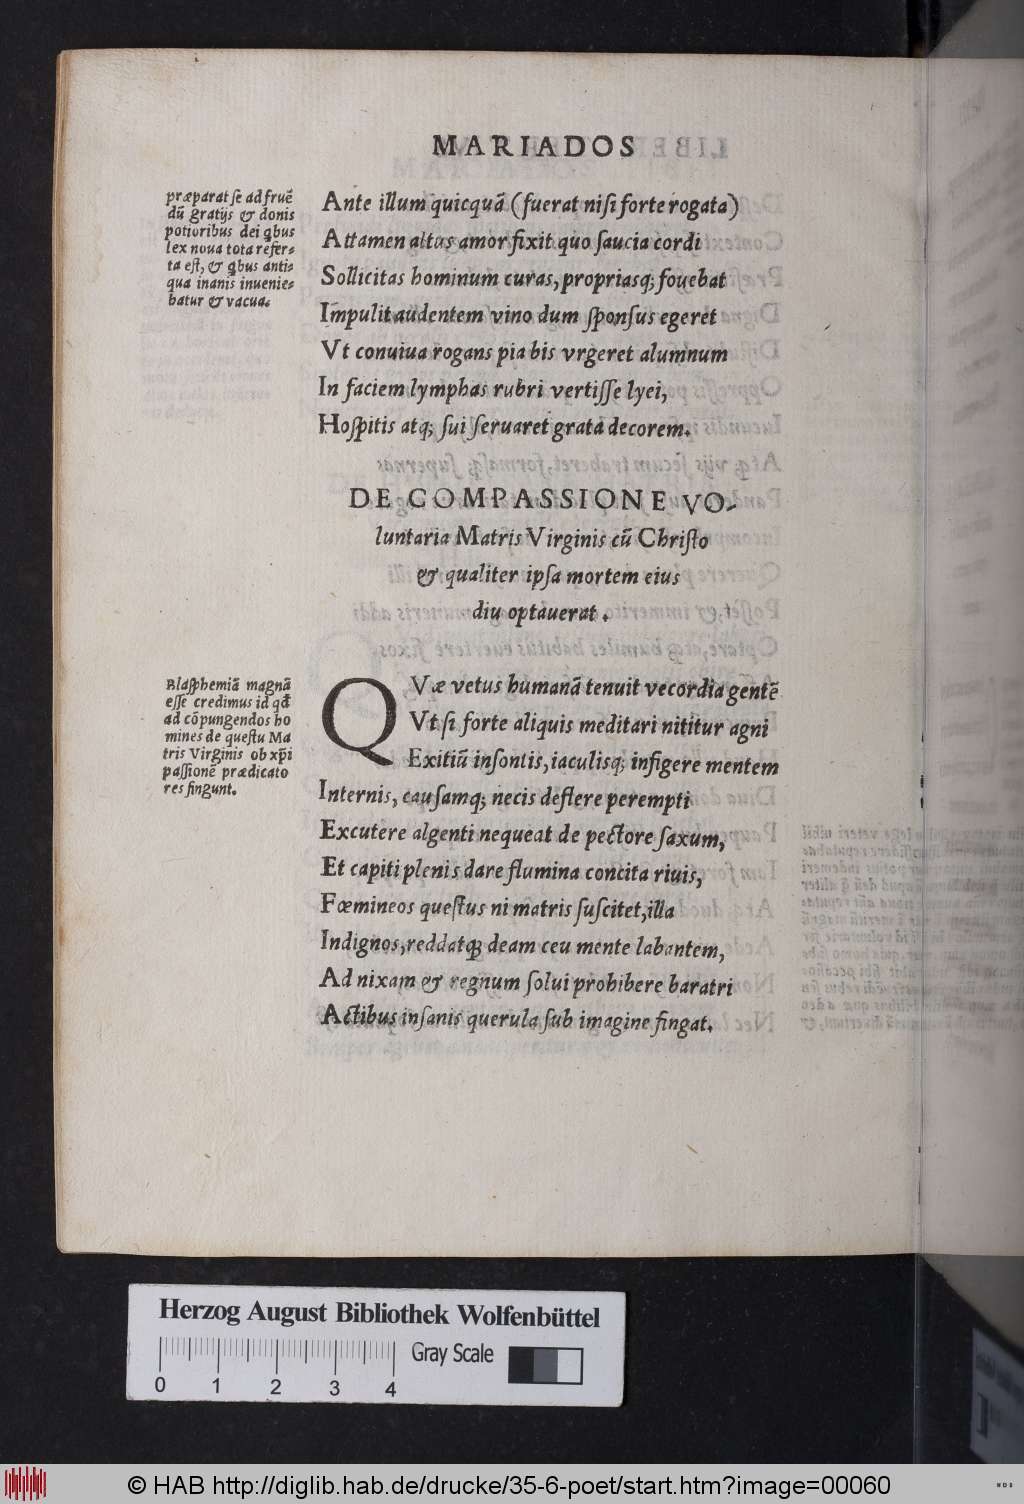 MARIADOS
præparat se ad fruē
dū gratijs & donis
potioribus dei qbus
lex noua tota refer-
ta est, & qbus anti-
qua inanis inuenie-
batur & vacua.
Ante illum quicquā (fuerat nisi forte rogata)
Attamen altus amor fixit quo saucia cordi
Sollicitas hominum curas, propriasq; fouebat
Impulit audentem vino dum sponsus egeret
Vt conuiua rogans pia bis vrgeret alumnum
In faciem lymphas rubri vertisse lyei,
Hospitis atq; sui seruaret grata decorem.
DE COMPASSIONE VO-
luntaria Matris Virginis cū Christo
& qualiter ipsa mortem eius
diu optauerat.
Blasphemiā magnā
esse credimus id qđ
ad cōpungendos ho
mines de questu Ma
tris Virginis ob xp̄i
passionē prædicato
res fingunt.
QVæ vetus humanā tenuit vecordia gentē
Vt si forte aliquis meditari nititur agni
Exitiū insontis, iaculisq; infigere mentem
Internis, causamq; necis deflere perempti
Excutere algenti nequeat de pectore saxum,
Et capiti plenis dare flumina concita riuis,
Fœmineos questus ni matris suscitet, illa
Indignos, reddatq; deam ceu mente labantem,
Ad nixam & regnum solui prohibere baratri
Actibus insanis querula sub imagine fingat.
Herzog August Bibliothek Wolfenbüttel
0 1 2 3 4 Gray Scale
© HAB http://diglib.hab.de/drucke/35-6-poet/start.htm?image=00060